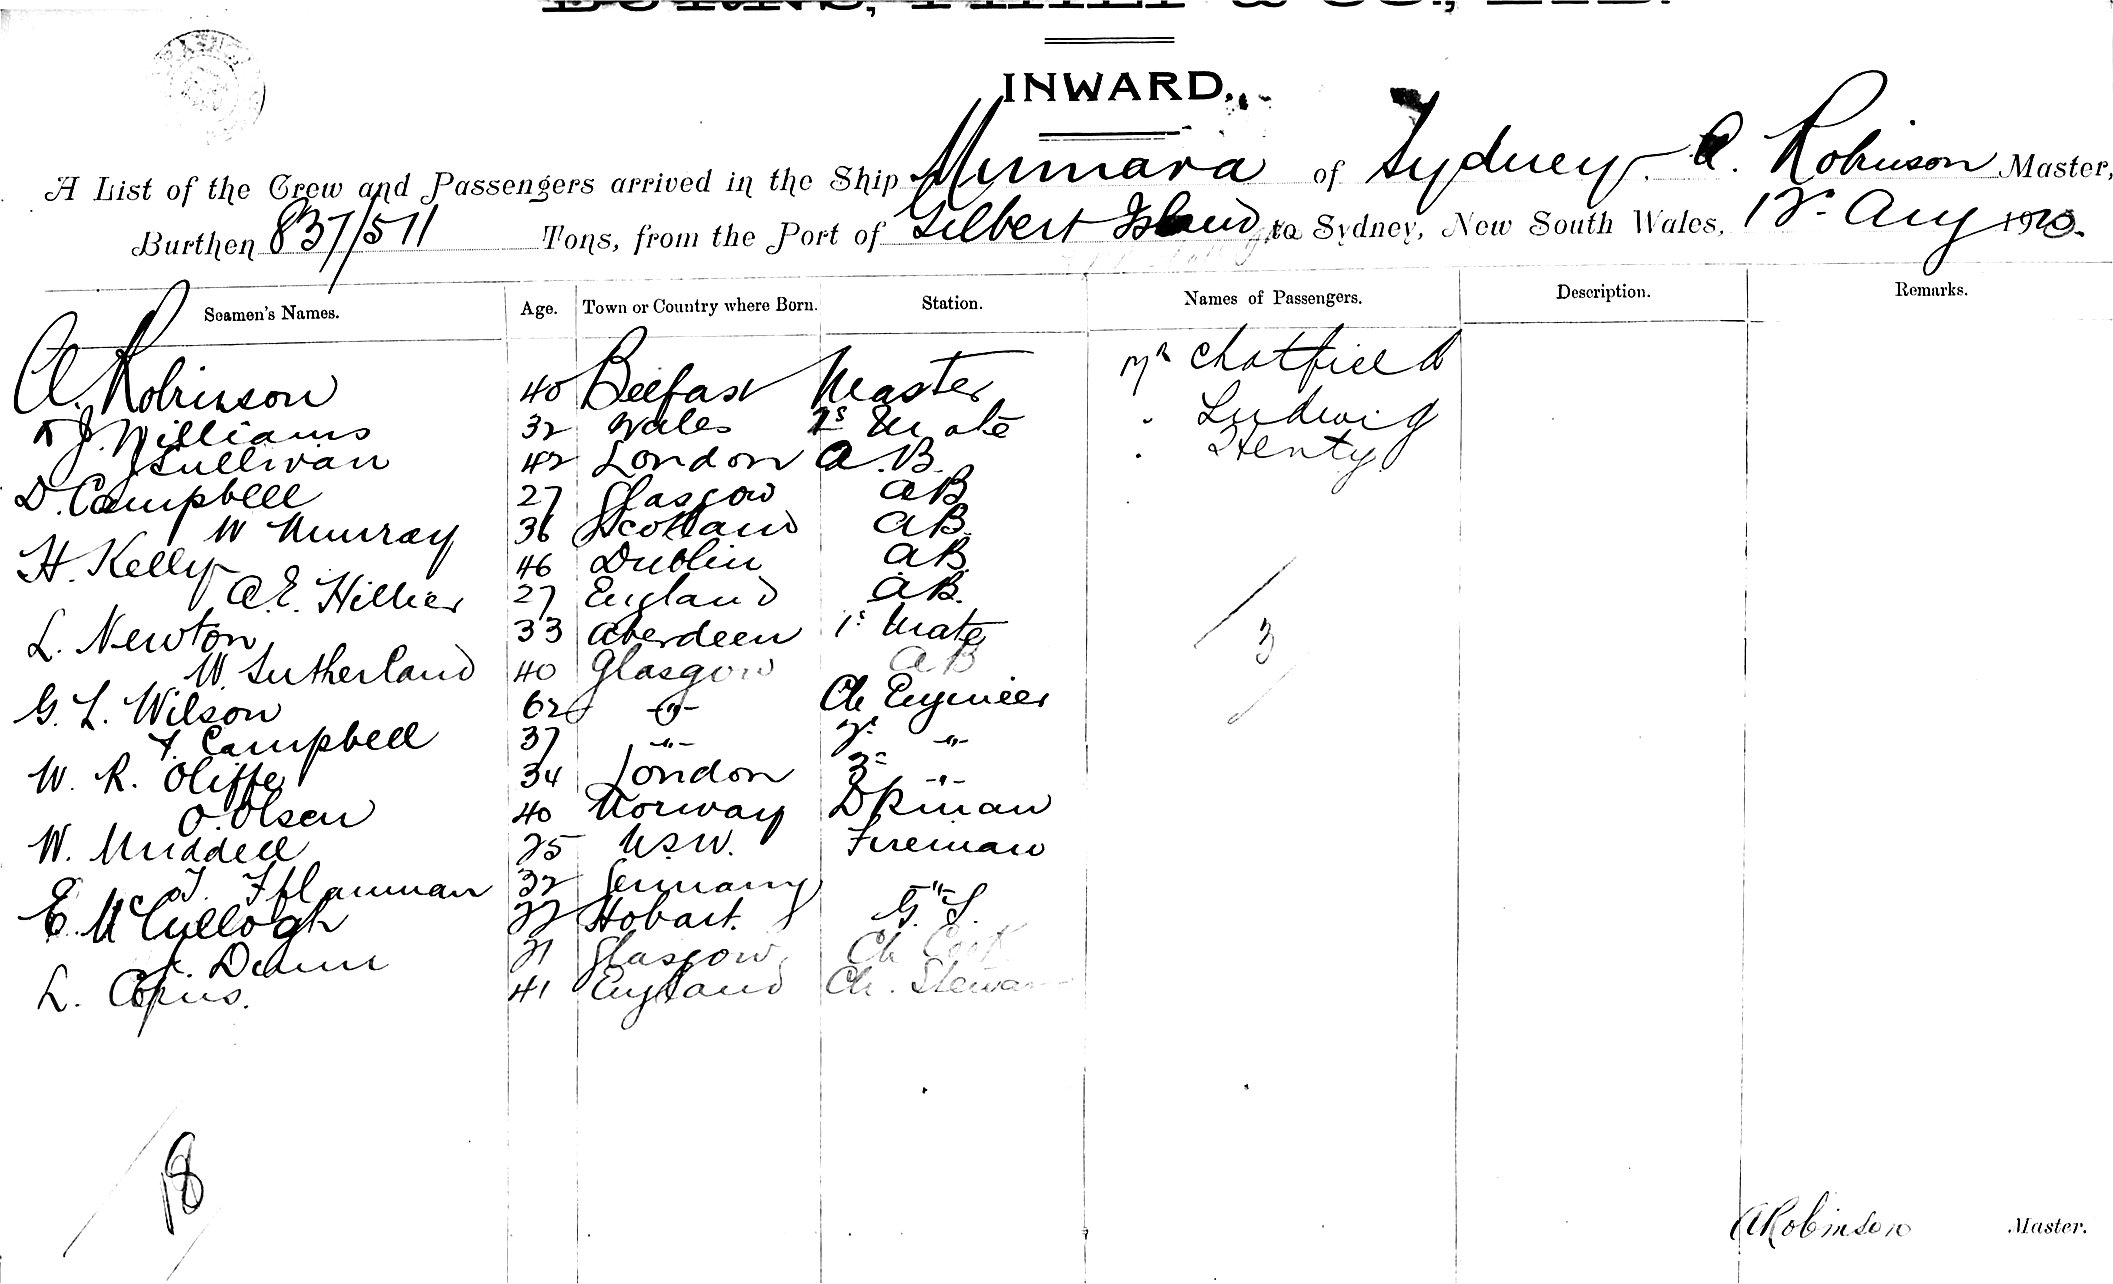 BURNS, PHILP & CO., LTD.
INWARD.
A List of the Crew and Passengers arrived in the Ship Mumara of Sydney. A. Robinson Master,
Burthen 837/511 Tons, from the Port of Gilbert Island to Sydney, New South Wales, 12 Aug 1910.
Seamen's Names. Age. Town or Country where Born. Station. Names of Passengers. Description. Remarks.
A. Robinson 40 Belfast Master Mr Chatfield
J. Williams 32 Wales 2s Mate " Ludwig
J Sullivan 42 London A.B. " Henty
D. Campbell 27 Glasgow AB
W Murray 36 Scotland AB.
H. Kelly 46 Dublin AB
A.E. Hillier 27 England AB.
L. Newton 33 Aberdeen 1s Mate 3
W. Sutherland 40 Glasgow AB
G. L. Wilson 62 -"- Ch Engineer
Campbell 37 -"- 2d -"-
W. R. Oliffe 34 London 3d -"-
O. Olsen 40 Norway Dkman
W. Muddell 25 N.S.W. Fireman
32 Germany -"-
E. McCullogh 22 Hobart. G. S.
Dunn 21 Glasgow. Ch Cook
L. Copus. 41 England Ch. Steward
18
A Robinson Master.